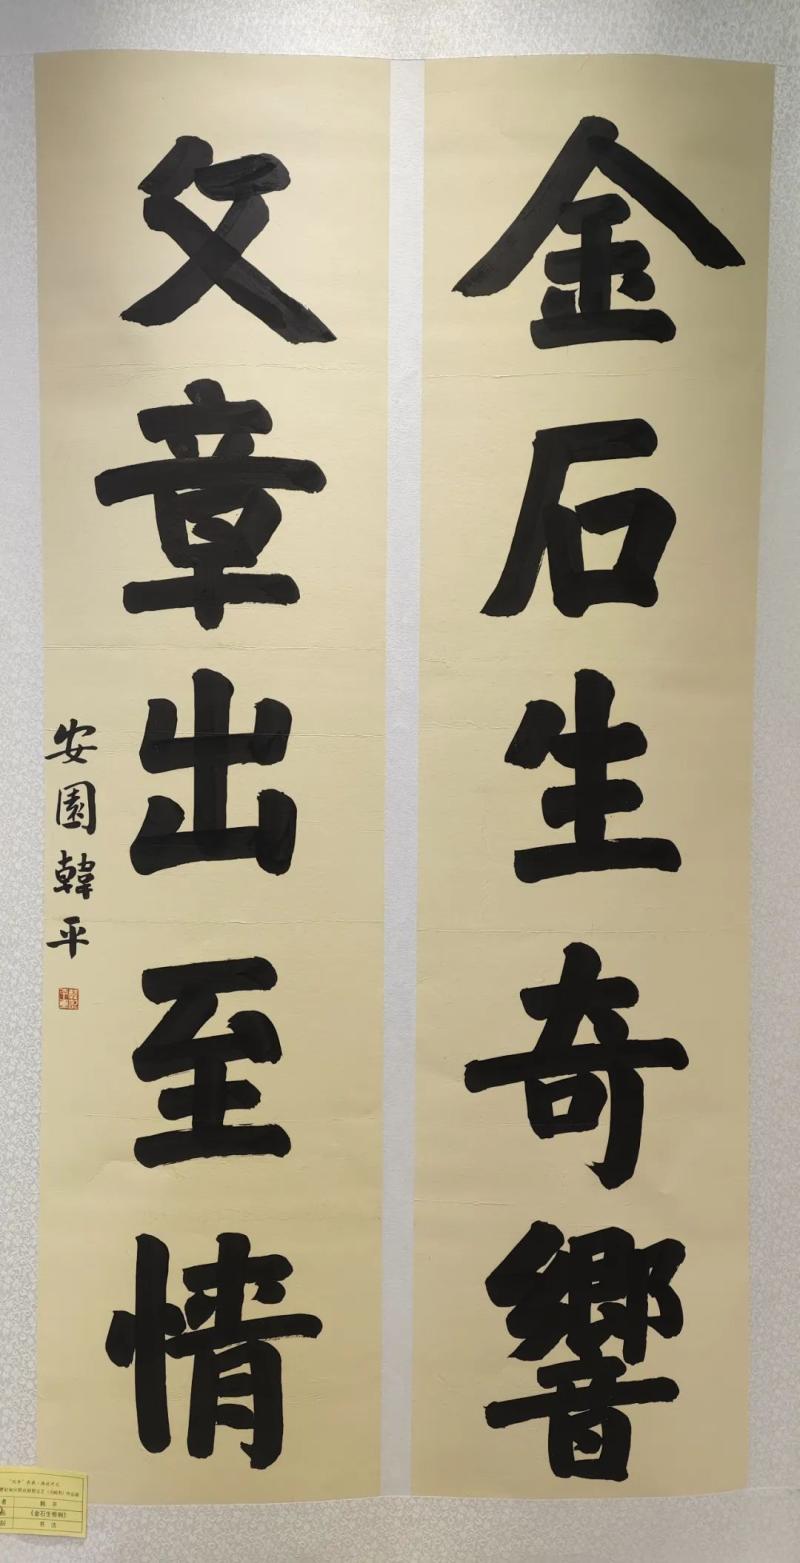 金石生奇響
文章出至情
安園韓平
韩平
《金石生奇响》
书法